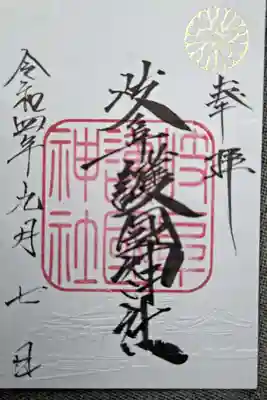 奉拝
岐阜護國神社
令和四年九月七日
岐阜
護國
神社